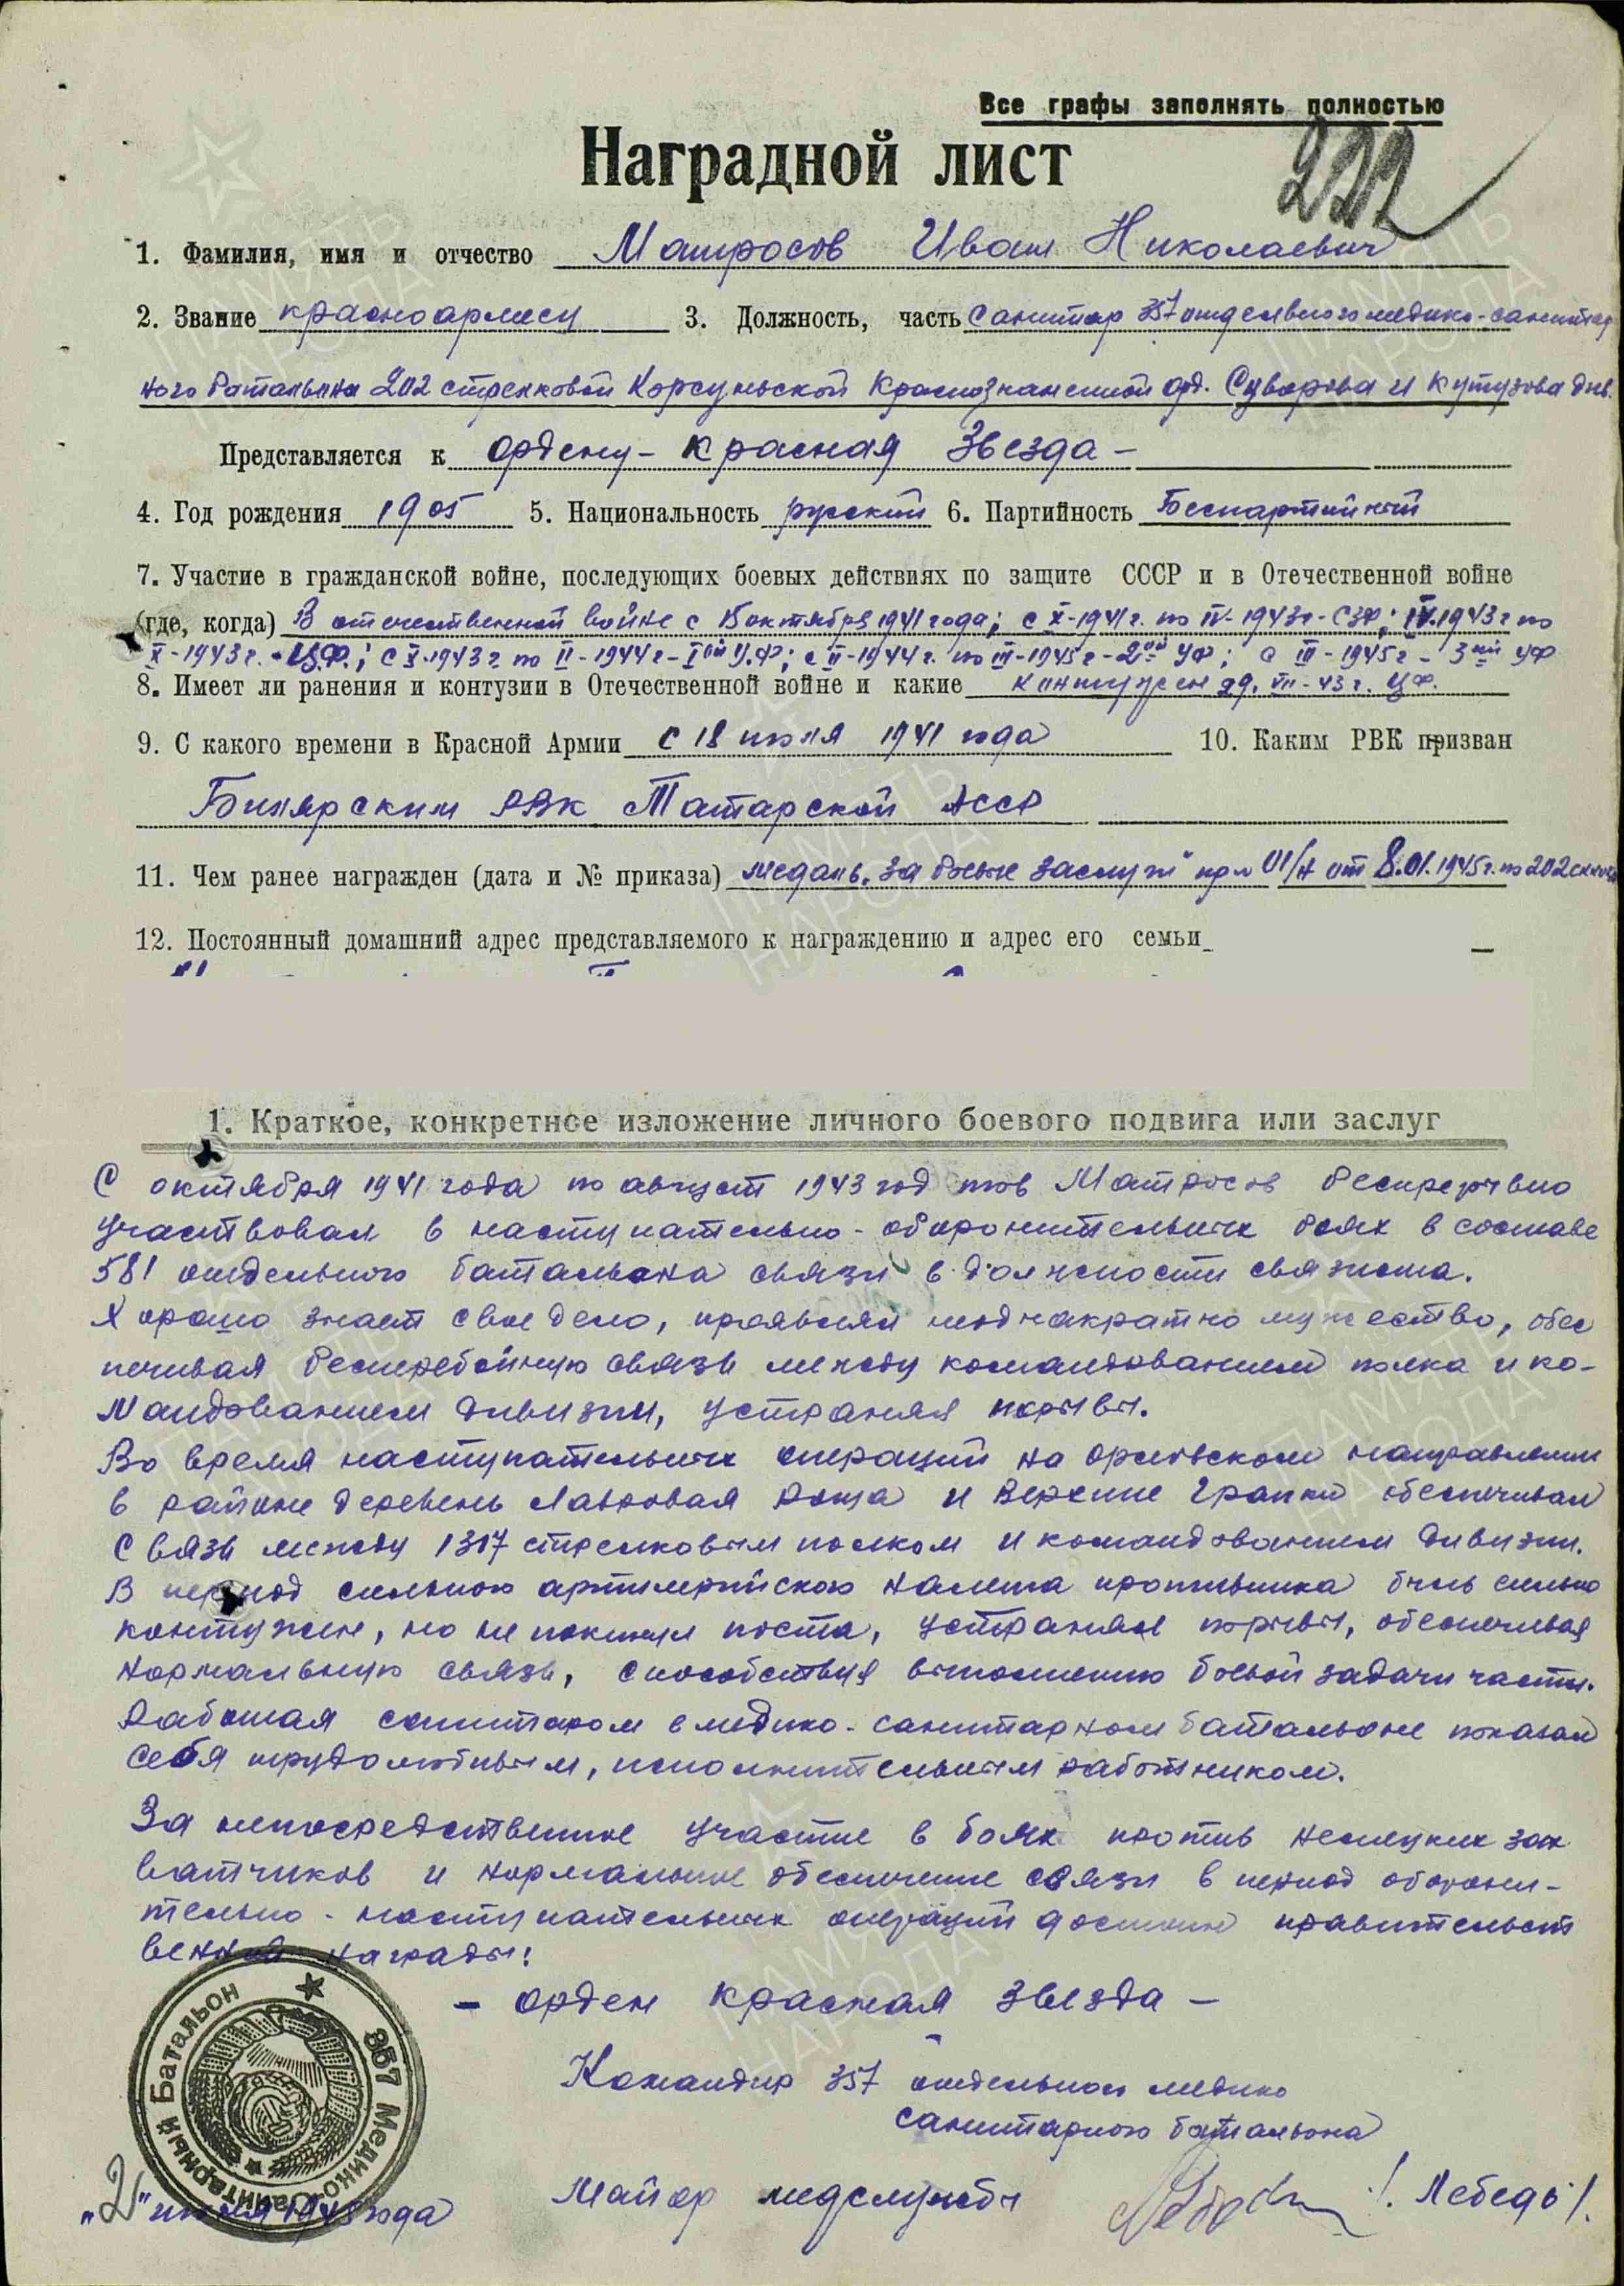 Все графы заполнять полностью
222
Наградной лист
1. Фамилия, имя и отчество Матросов Иван Николаевич
2. Звание красноармеец 3. Должность, часть Санитар 357 отдельного медико-санитар
ного батальона 202 стрелковой Корсуньской Краснознаменной орд. Суворова и Кутузова див.
Представляется к ордену - Красная Звезда -
4. Год рождения 1905 5. Национальность русский 6. Партийность Беспартийный
7. Участие в гражданской войне, последующих боевых действиях по защите СССР и в Отечественной войне
(где, когда) В отечественной войне с 15 октября 1941 года; с X-1941 г. по IV-1943 г - СЗФ; IV.1943 г по
X-1943 г. - ЦФ.; с X.1943 г. по II-1944 г - I ый У.Ф; с II-1944 г. по III-1945 г - 2 ой УФ; с III-1945 г - 3 ий УФ
8. Имеет ли ранения и контузии в Отечественной войне и какие контужен 29. VII-43 г. ЦФ.
9. С какого времени в Красной Армии с 18 июля 1941 года 10. Каким РВК призван
Билярским РВК Татарской АССР
11. Чем ранее награжден (дата и № приказа) медаль "За боевые заслуги" пр. 01/н от 8.01.1945 г. по 202
12. Постоянный домашний адрес представляемого к награждению и адрес его семьи
1. Краткое, конкретное изложение личного боевого подвига или заслуг
С октября 1941 года по август 1943 год тов Матросов беспрерывно
участвовал в наступательно-оборонительных боях в составе
581 отдельного батальона связи в должности связиста.
Хорошо знает свое дело, проявлял неоднакратно мужество, обес
печивая бесперебойную связь между командованием полка и ко-
мандованием дивизии, устраняя порывы.
Во время наступательных операций на орловском направлении
в районе деревень Лавровая Роща и Верхние Грапки обеспечивал
связь между 1317 стрелковым полком и командованием дивизии.
В период сильного артиллерийского налета противника был сильно
контужен, но не покинул поста, устранял порывы, обеспечивая
нормальную связь, способствуя выполнению боевой задачи части.
Работая санитаром в медико-санитарном батальоне показал
себя трудолюбивым, исполнительным работником.
За непосредственное участие в боях против немецких зах
ватчиков и нормальное обеспечение связи в период оборони-
тельно-наступательных операций достоин правительст
венной награды:
- орден красная звезда -
Командир 357 отдельного медико
санитарного батальона
Майор медслужбы /Лебедь/.
"2" июня 1945 года
357 Медико-Санитарный Батальон
ПАМЯТЬ НАРОДА